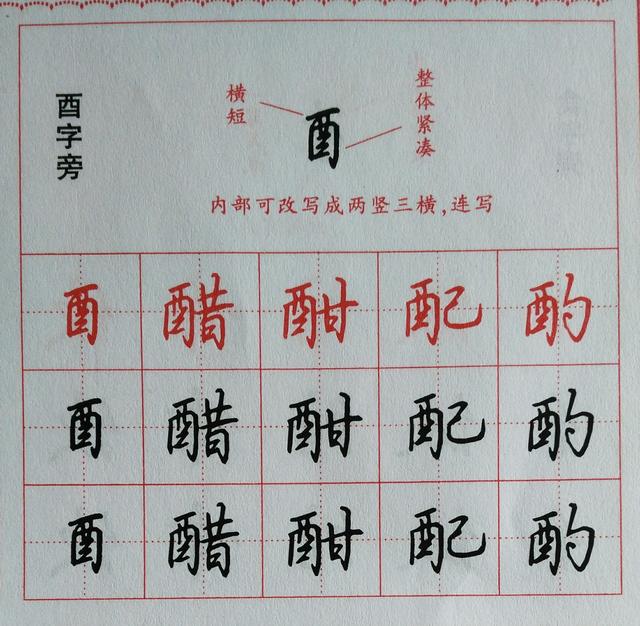 酉字旁
横短
酉
整体紧凑
内部可改写成两竖三横,连写
酉 醋 酣 配 酌
酉 醋 酣 配 酌
酉 醋 酣 配 酌